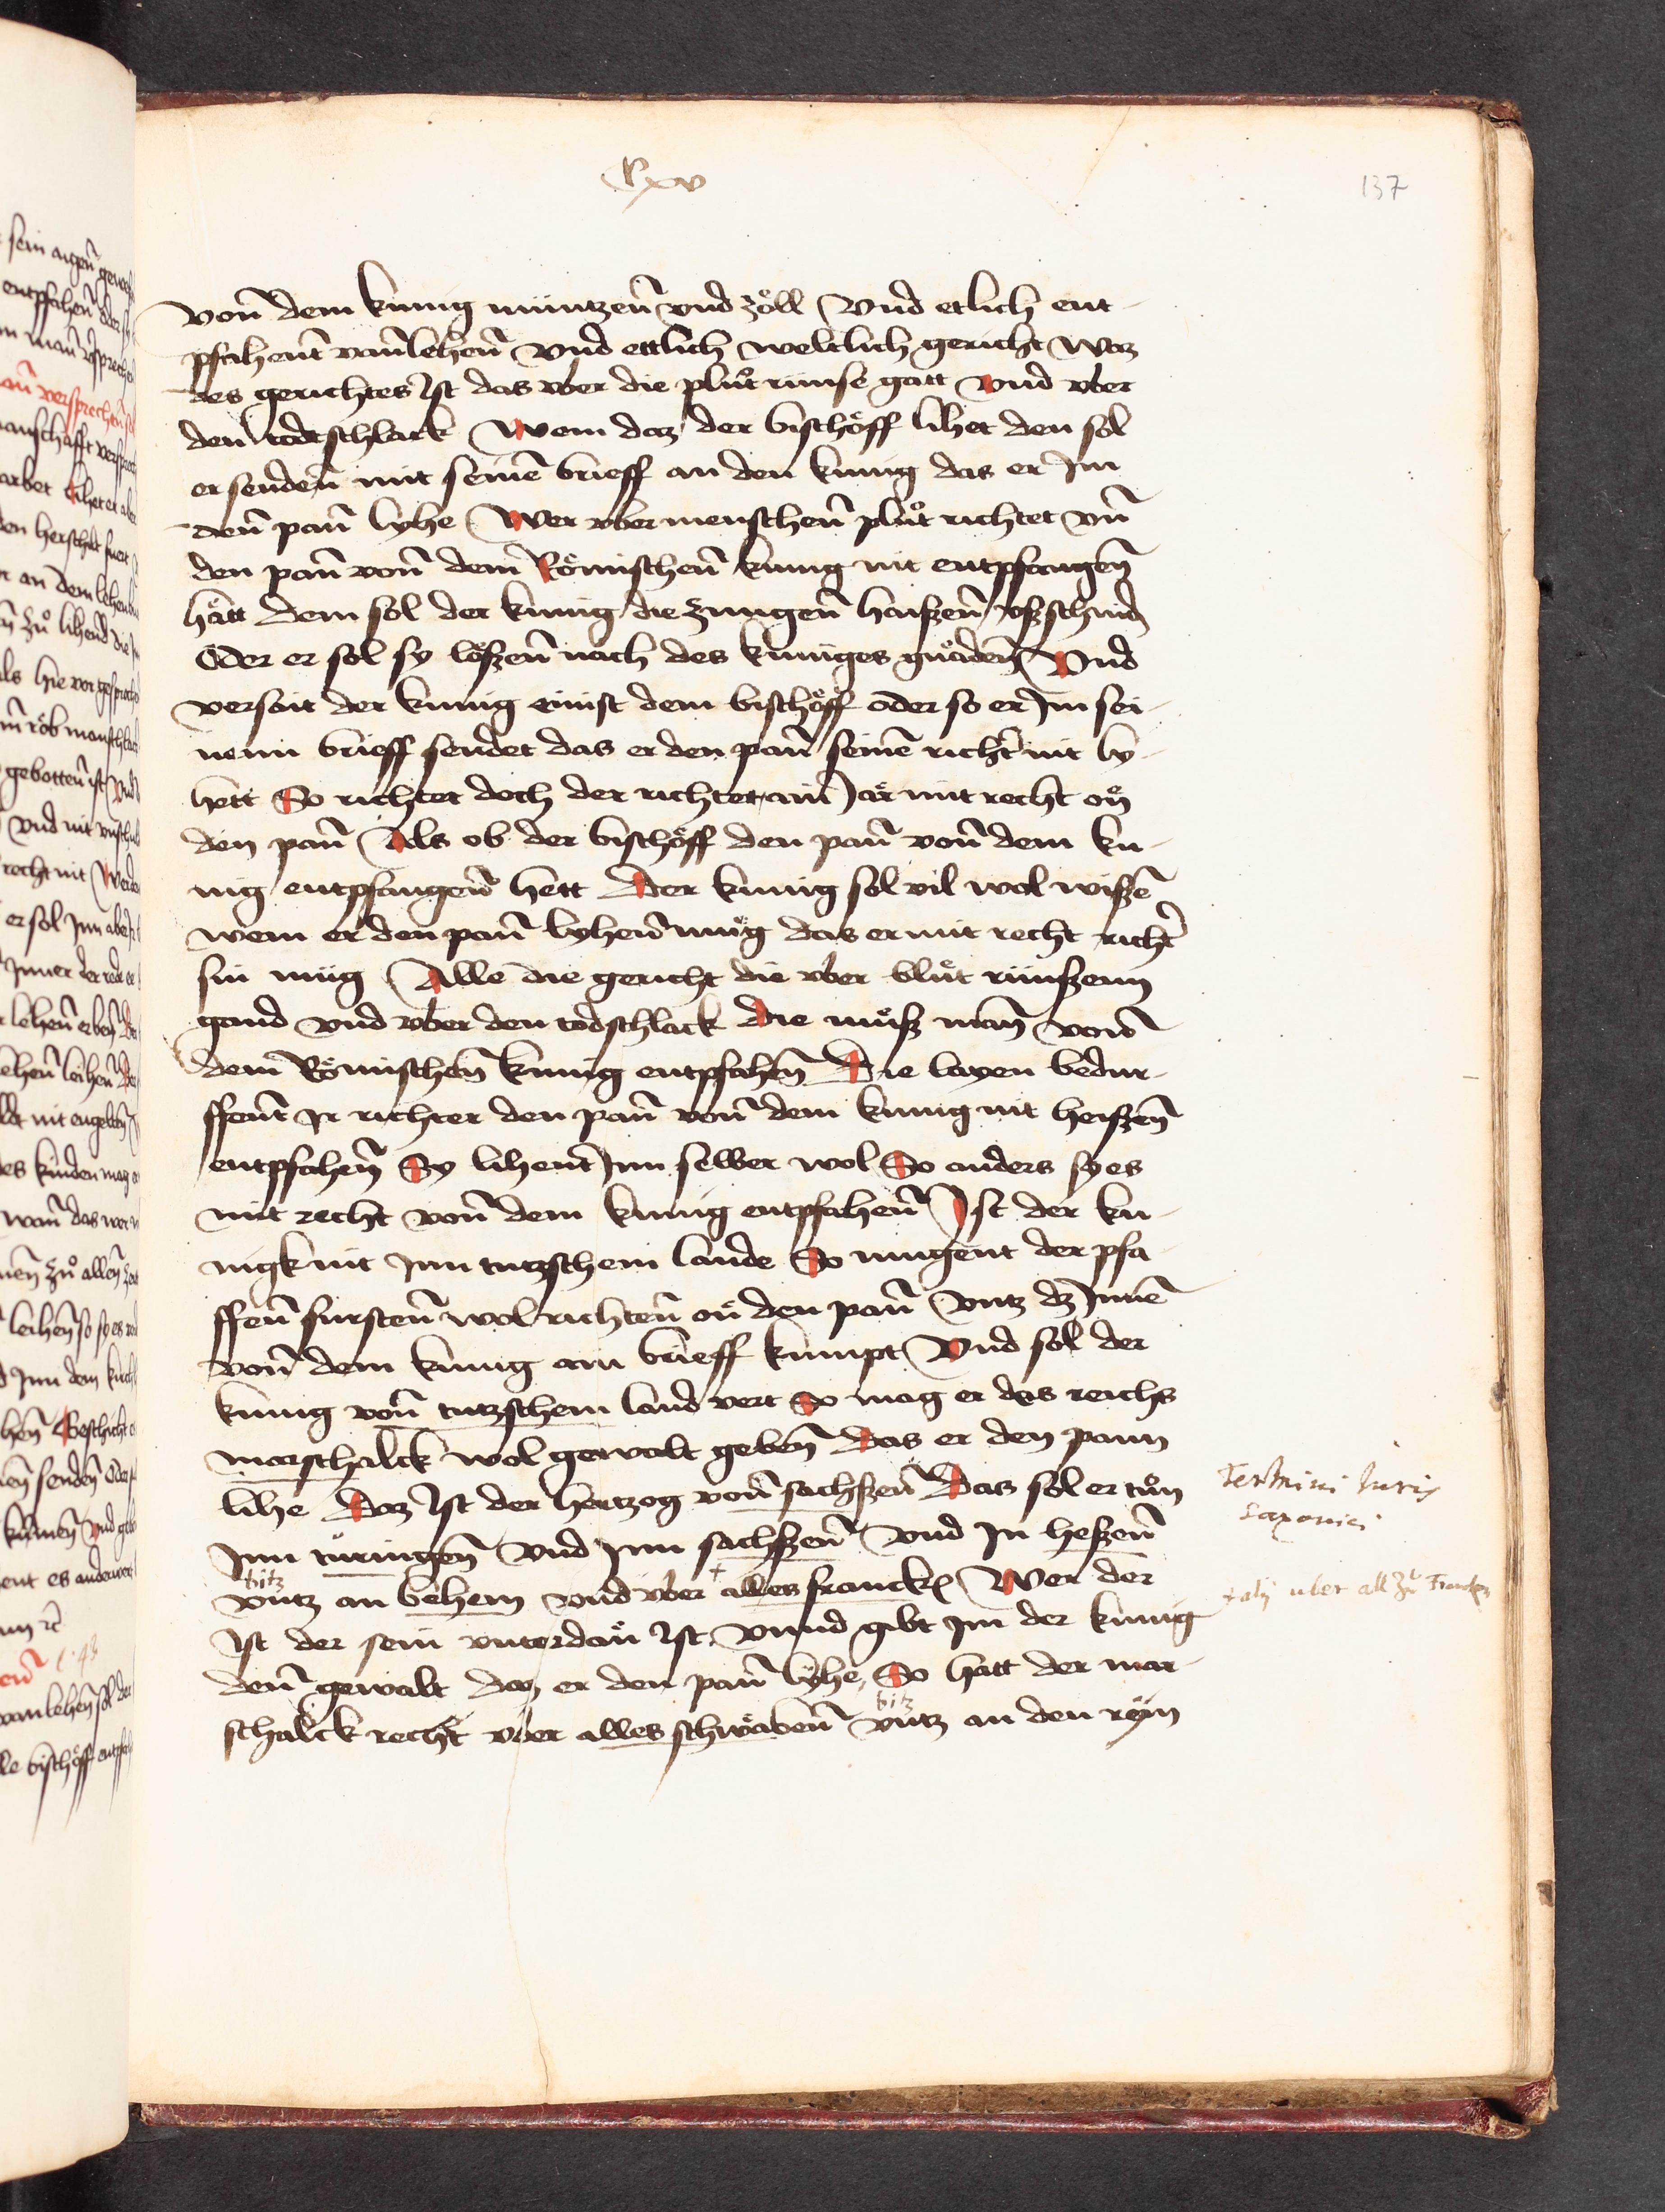 Cxv
137
Voñ dem kunig müntzeñ vnd zöll Vnd etlich ent-
pfahent vanleheñ vnd ettlich weltlich gericht Waz
des gerichtes Ist das vber die plůt rünse gatt vnd vber
den todtschlack Wem daz der bischöff lihet den sol
er sendeñ mit seinē brieff an den kunig das er Im
deñ pañ lyhe Wer vber menscheñ plůt richtet vñ
den pañ voñ dem Römischeñ kunig nit entpfangeñ
hätt dem sol der kunig die zungeñ haißeñ vßschnid
Oder er sol sy lößeñ nach des kuniges gnadeñ Vnd
versait der kunig einist dem bischöff oder so er Im sei-
nenn brieff sendet das er den pañ seinē richt̄ nit ly-
hett So richtet doch der richter ain Jar mit recht on
den pañ Als ob der bischöff den pañ voñ dem ku-
nig entpfangeñ hett Der kunig sol vil wol wißē
wem er den pañ lyheñ mug das er mit recht richt̄
sin müg Alle die gericht die vber blůt rünßenn
gand vnd vber den todschlack die můß mañ voñ
dem Römischeñ kunig entpfaheñ Die layen bedur-
ffent Ir richter den pañ voñ dem kunig nit heißeñ
entpfaheñ Sy lihent Inn selber wol So anders sy es
mit recht voñ dem kunig entpfaheñ Ist der ku-
nigk nit Inn tutzschem lande So mugent der pfa-
ffeñ fursteñ wol richteñ on den pañ vntz dz Innē
voñ dem kunig ain brieff kumpt Vnd sol der
kunig voñ tutzschem land vert So mag er des reichs
marschalck wol gewalt gebeñ Das er den pann
lihe Daz Ist der hertzog voñ sachßeñ Das sol er tůn
Inn türingeñ Vnd Inn sachßeñ Vnd In heßeñ
bitz
vntz an behem vnd vber + alles francken Wer der
Ist der sein vnterdañ Ist Vnnd gibt Im der kunig
deñ gewalt daz er den pañ lyhe, So hatt der mar-
bitz
schalck recht vber alles schwabeñ vntz an den reyn
Termini Iuris
Saxonici
+ alij uber all zu Francken